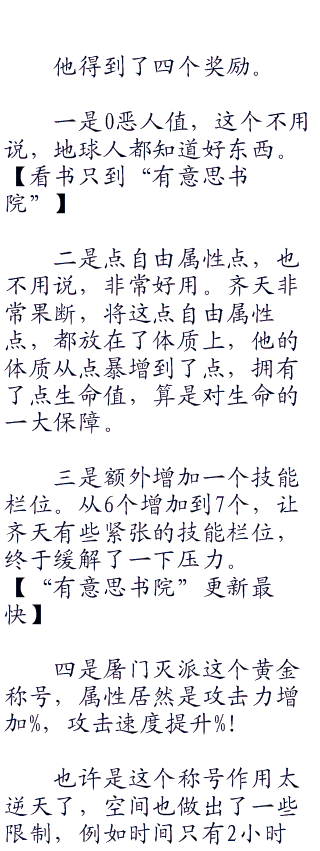 他得到了四个奖励。
一是0恶人值，这个不用
说，地球人都知道好东西。
【看书只到“有意思书
院”】
二是点自由属性点，也
不用说，非常好用。齐天非
常果断，将这点自由属性
点，都放在了体质上，他的
体质从点暴增到了点，拥有
了点生命值，算是对生命的
一大保障。
三是额外增加一个技能
栏位。从6个增加到7个，让
齐天有些紧张的技能栏位，
终于缓解了一下压力。
【“有意思书院”更新最
快】
四是屠门灭派这个黄金
称号，属性居然是攻击力增
加%，攻击速度提升%！
也许是这个称号作用太
逆天了，空间也做出了一些
限制，例如时间只有2小时